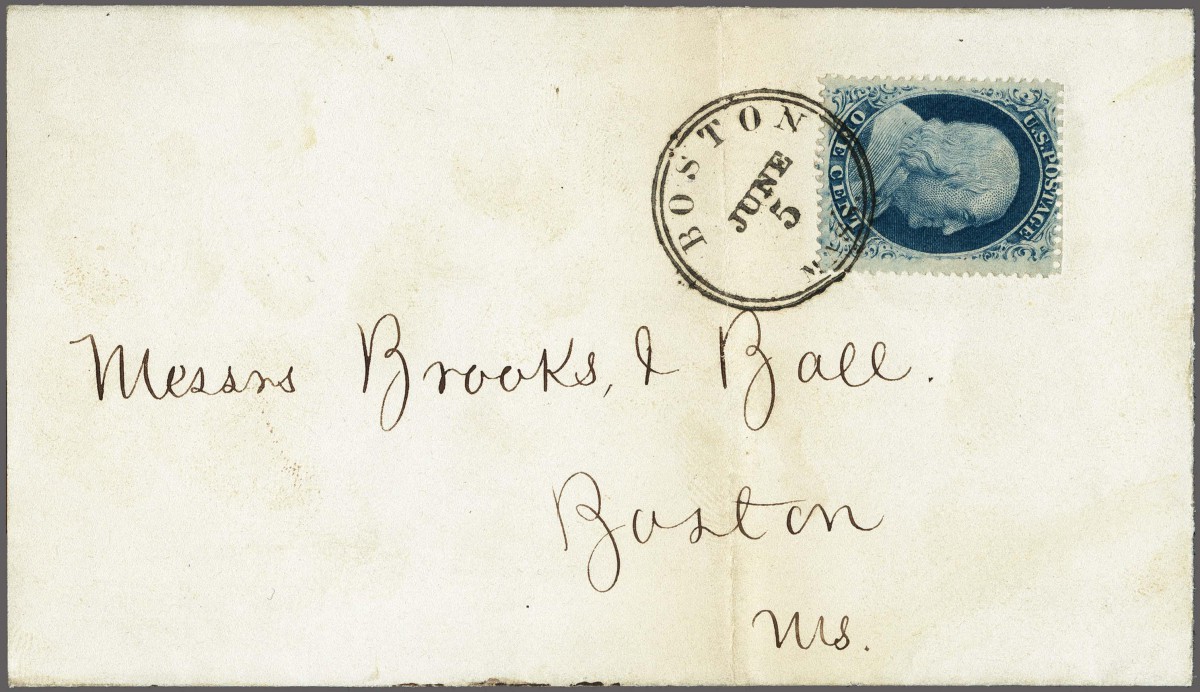 BOSTON
JUNE
5
MASS.
U.S. POSTAGE
ONE CENT
Messrs Brooks, & Ball.
Boston
Ms.